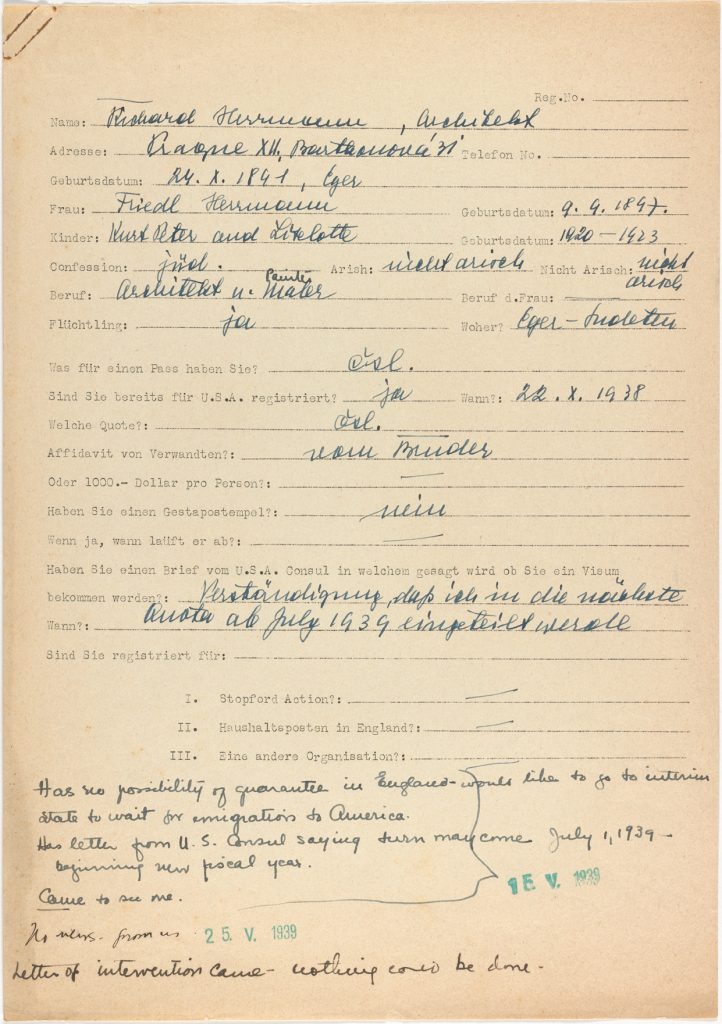 Reg.No.
Name: Richard Herrmann, Architekt
Adresse: Prague XII, 31 Telefon No.
Geburtsdatum: 24. X. 1891, Eger
Frau: Friedl Herrmann Geburtsdatum: 9. 9. 1897.
Kinder: Kurt Peter and Liselotte Geburtsdatum: 1920 – 1923
Confession: jüd. Arish: nicht arisch Nicht Arisch: nicht arisch
Painter
Beruf: Architekt u. Maler Beruf d.Frau:
Flüchtling: ja Woher? Eger – Sudeten
Was für einen Pass haben Sie? čsl.
Sind Sie bereits für U.S.A. registriert? ja Wann?: 22. X. 1938
Welche Quote?: čsl.
Affidavit von Verwandten?: vom Bruder
Oder 1000.- Dollar pro Person?: —
Haben Sie einen Gestapostempel?: nein
Wenn ja, wann läuft er ab?: —
Haben Sie einen Brief vom U.S.A. Consul in welchem gesagt wird ob Sie ein Visum
bekommen werden?: Verständigung, daß ich in die nächste
Wann?: Quota ab July 1939 eingeteilt werde
Sind Sie registriert für:
I. Stopford Action?: —
II. Haushaltsposten in England?: —
III. Eine andere Organisation?:
Has no possibility of guarantee in England – would like to go to interim
state to wait for emigration to America.
Has letter from U.S. Consul saying turn may come July 1, 1939 –
beginning new fiscal year.
15 V. 1939
Came to see me.
No news from us 25. V. 1939
Letter of intervention came – nothing could be done –